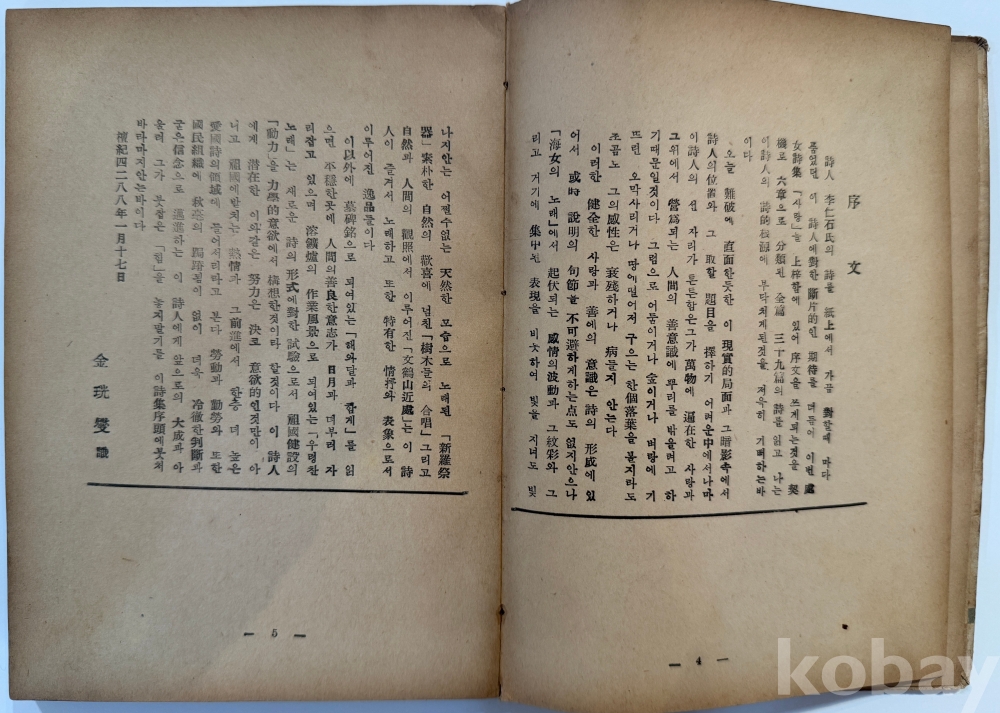 序文
詩人 李仁石氏의 詩를 紙上에서 가끔 對할때 마다
품었던 이 詩人에對한 斷片的인 期待를 더듬어 이번 處
女詩集「사랑」을 上梓함에 있어 序文을 쓰게되는것을 契
機로 六章으로 分類된 全篇 三十九篇의 詩를 읽고 나는
이詩人의 詩的核源에 부닥처게된것을 저윽히 기뻐하는바
이다
오늘 難破에 直面한듯한 이 現實的局面과 그暗影속에서
詩人의位置와 그 取할 題目을 擇하기 어려운中에서나마
이詩人의 선 자리가 튼튼함은그가 萬物에 遍在한 사랑과
그위에서 營爲되는 人間의 善意識에뿌리를 박을려고 하
기때문일것이다 그럼으로 어둠이거나 술이거나 벼랑에 기
뜨린 오막사리거나 땅에떨어저 구으는 한個落葉을 볼지라도
조곰노 그의感性은 衰殘하거나 病들지 안는다
이러한 健全한 사랑과 善에의 意識은 詩의 形成에 있
어서 或時 說明的 句節을 不可避하게하는点도 없지안으나
「海女의 노래」에서 起伏되는 感情의波動과 그紋彩와 그
리고 거기에 集中된 表現을 비롯하여 빛을 지녀도 빛
— 4 —
나지안는 어쩔수없는 天然한 모습으로 노래된 「新羅祭
器」素朴한 自然의 歡喜에 넘친「樹木들의 合唱」그리고
自然과 人間의 觀照에서 이루어진「文鶴山近處」는 이 詩
人이 즐겨서 노래하고 또한 特有한 情抒와 表象으로서
이루어진 逸品들이다
이以外에 墓碑銘으로 되여있는「해와달과 함께」를 읽
으면 不穩한곳에 人間의善良한意志가 日月과 더부러 자
리잡고 있으며 溶鑛爐의 作業風景으로 되여있는「우렁찬
노래」는 새로운 詩의形式에對한 試驗으로서 祖國健設의
「動力」을 力學的意欲에서 構想한것이라 할것이다 이 詩人
에게 潛在한 이와같은 努力은 決코 意欲的인것만이 아
니고 祖國에바치는 熱情과 그前進에서 한층 더 높은
愛國詩의領域에 들어서리라고 본다 勞動과 勤勞와 또한
國民組織에 秋毫의 踟躇됨이 없이 더욱 冷徹한判斷과
굳은信念으로 邁進하는 이 詩人에게 앞으로의 大成과 아
울러 그가 못잡은「힘」을 놓지말기를 이詩集序頭에못처
바라마지안는바이다
檀紀四二八八年一月十七日
金珖燮 識
— 5 —
kobay